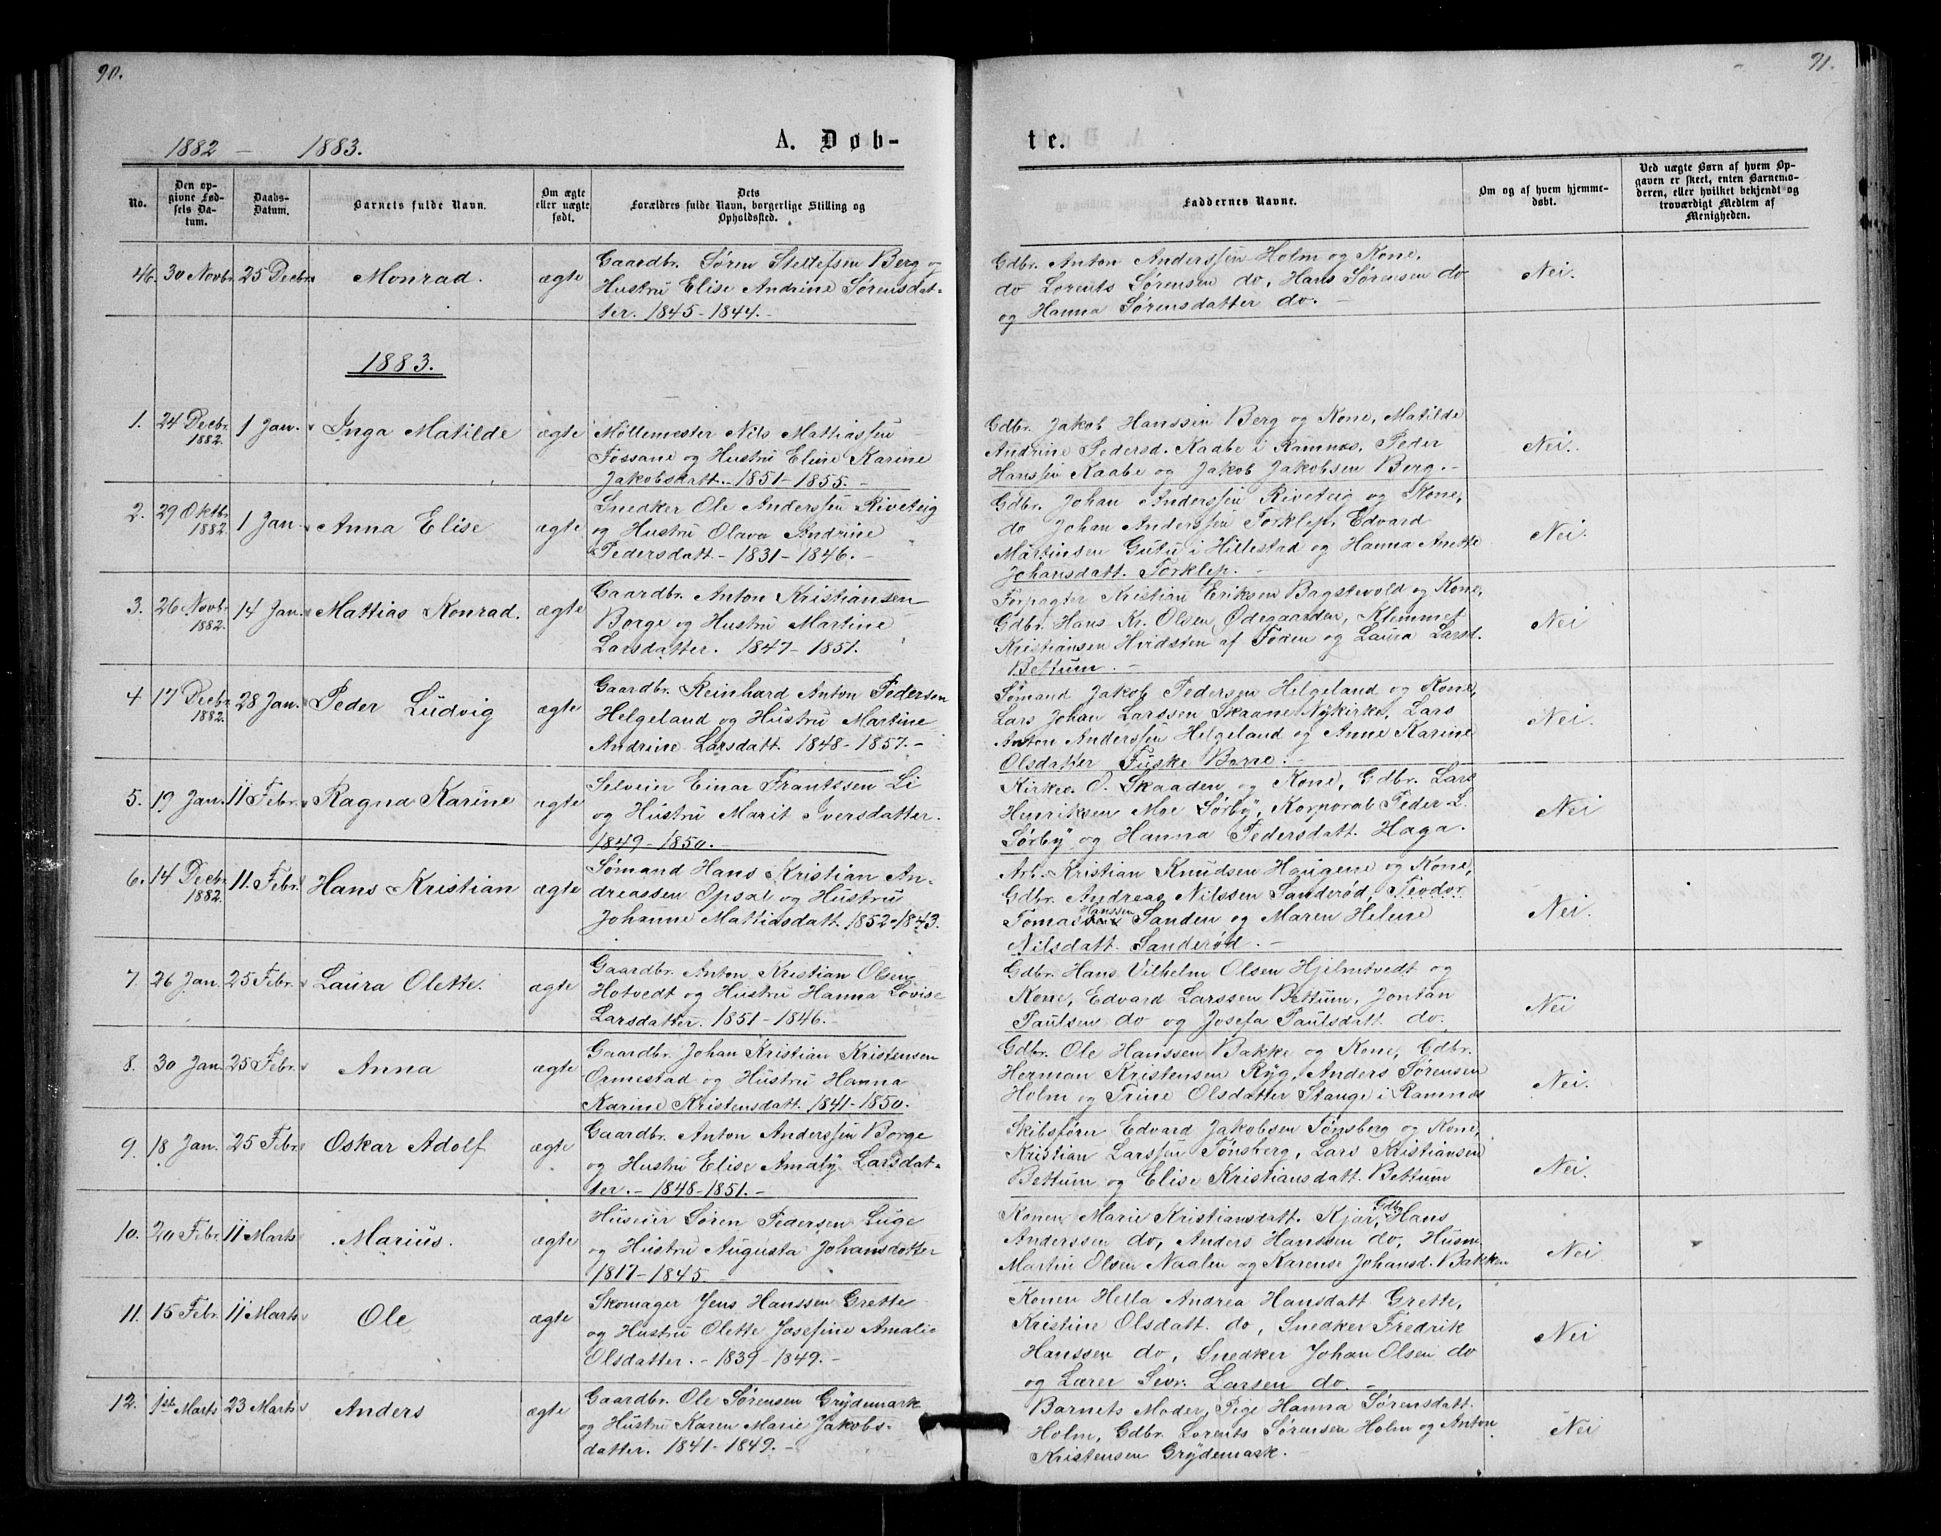 90.
91.
1882 - 1883.
A. Døb-
te.
No.
Den opgivne Fødsels Datum.
Daabs-Datum.
Barnets fulde Navn.
Om ægte eller uægte født.
Dets Forældres fulde Navn, borgerlige Stilling og Opholdssted.
Faddernes Navne.
Om og af hvem hjemmedøbt.
Ved uægte Børn af hvem Opgaven er skeet, enten Barnemoderen, eller hvilket bekjendt og troværdigt Medlem af Menigheden.
46. 30 Novbr. 25 Decbr. Monrad. ægte
Gaardbr. Søren Berg og
Hustru Elise Andrine Sørensdat-
ter. 1845-1844.-
Gdbr. Anton Anderssen Holm og Kone,
do Lorents Sørensen do, Hans Sørensen do
og Hanna Sørensdatter do.-
Nei.
1883.
1. 24 Decbr. 1882. 1 Jan. Inga Matilde ægte
Møllemester Nils Mattiassen
Fossane og Hustru Eline Karine
Jakobsdatt.- 1851-1855.-
Gdbr. Jakob Hanssen Berg og Kone, Matilde
Andrine Pedersd. Kaabe i Ramnæs, Peder
Hanssen Kaabe og Jakob Jakobsen Berg.-
Nei.
2. 29 Oktbr. 1882. 1 Jan. Anna Elise ægte
Snedker Ole Anderssen Riveteig
og Hustru Olava Andrine
Pedersdatt- 1831-1846.-
Gdbr. Johan Anderssen Riveteig og Kone,
do Johan Anderssen Torklep, Edvard
Martinsen Gutu i Hillestad og Hanna Anette
Johansdatt. Torklep.-
Nei.
3. 26 Novbr. 1882. 14 Jan. Mattias Konrad. ægte
Gaardbr. Anton Kristiansen
Borge og Hustru Martine
Larsdatter. 1847-1851.
Forpagter Kristian Eriksen Bagstevold og Kone,
Gdbr. Hans Kr. Olsen Ødegaarden, Klemmet
Kristiansen Hvidsten af Foden og Laura Larsd.
Bettum.-
Nei
4 17 Decbr. 1882. 28 Jan. Peder Ludvig ægte
Gaardbr. Reinhard Anton Pedersen
Helgeland og Hustru Martine
Andrine Larsdatt. 1848-1857.-
Sømand Jakob Pedersen Helgeland og Kone,
Lars Johan Larssen Skaane Nykirke, Lars
Anton Anderssen Helgeland og Anne Karine
Olsdatter Fuske Borre.-
Nei.
5. 19 Jan. 11 Febr. Ragna Karine ægte
Selveier Einar Frantssen Li
og Hustru Marit Iversdatter.
1849-1850.
Kirkes. O. Skaaden og Kone, Gdbr. Lars
Henriksen Moe Sørby, Korporal Peder L.
Sørby og Hanna Pedersdatt. Haga.
Nei
6. 14 Decbr. 1882. 11. Febr. Hans Kristian ægte
Sømand Hans Kristian An-
dreassen Opsal og Hustru
Johanne Mattiasdatt. 1852-1843.
Arb. Kristian Knudsen Haugene og Kone,
Gdbr. Andreas Nilssen Sanderød, Teodor
Tomas Hanssen Sanden og Maren Helene
Nilsdatt. Sanderød.-
Nei.
7. 26 Jan. 25 Febr. Laura Olette. ægte
Gaardbr. Anton Kristian Olsen
Hotvedt og Hustru Hanna Lovise
Larsdatter. 1851-1846.-
Gdbr. Hans Vilhelm Olsen Hjelmtvedt og
Kone, Edvard Larssen Bettum, Jontan
Paulsen do og Josefa Paulsdatt. do.
Nei
8. 30 Jan. 25 Febr. Anna ægte
Gaardbr. Johan Kristian Kristensen
Ormestad og Hustru Hanna
Karine Kristensdatt. 1841-1850.
Gdbr. Ole Hanssen Bakke og Kone, Gdbr.
Herman Kristensen Ryg, Anders Sørensen
Holm og Trine Olsdatter Stange i Ramnæs
Nei.
9. 18 Jan. 25 Febr. Oskar Adolf ægte
Gaardbr. Anton Anderssen Borge
og Hustru Elise Amaly Larsdat-
ter.- 1848-1851.-
Skibsfører Edvard Jakobsen Tønsberg og Kone,
Kristian Larssen Tønsberg, Lars Kristiansen
Bettum og Elise Kristiansdatt. Bettum
Nei.
10. 20 Febr. 11 Marts Marius. ægte
Huseier Søren Pedersen Luge
og Hustru Augusta Johansdatter
1817-1845.
Konen Marie Kristiansdatt. Kjær, Gdbr. Hans
Anderssen do, Anders Hanssen do, Husm.
Martin Olsen Naalen og Karense Johansd. Bakken
Nei
11. 15 Febr. 11 Marts Ole ægte
Skomager Jens Hanssen Grette
og Hustru Olette Josefine Amalie
Olsdatter.- 1839-1849.-
Konen Hella Andrea Hansdatt. Grette,
Kristine Olsdatt. do, Snedker Fredrik
Hanssen do, Snedker Johan Olsen do
og Lærer Sevr. Larsen do.-
Nei
12. 1st Marts 23 Marts Anders ægte
Gaardbr. Ole Sørensen Grydemark
og Hustru Karen Marie Jakobs-
datter. 1841-1849.-
Barnets Moder, Pige Hanna Sørensdatt.
Holm, Gdbr. Lorents Sørensen Holm og Anton
Kristensen Grydemark.-
Nei